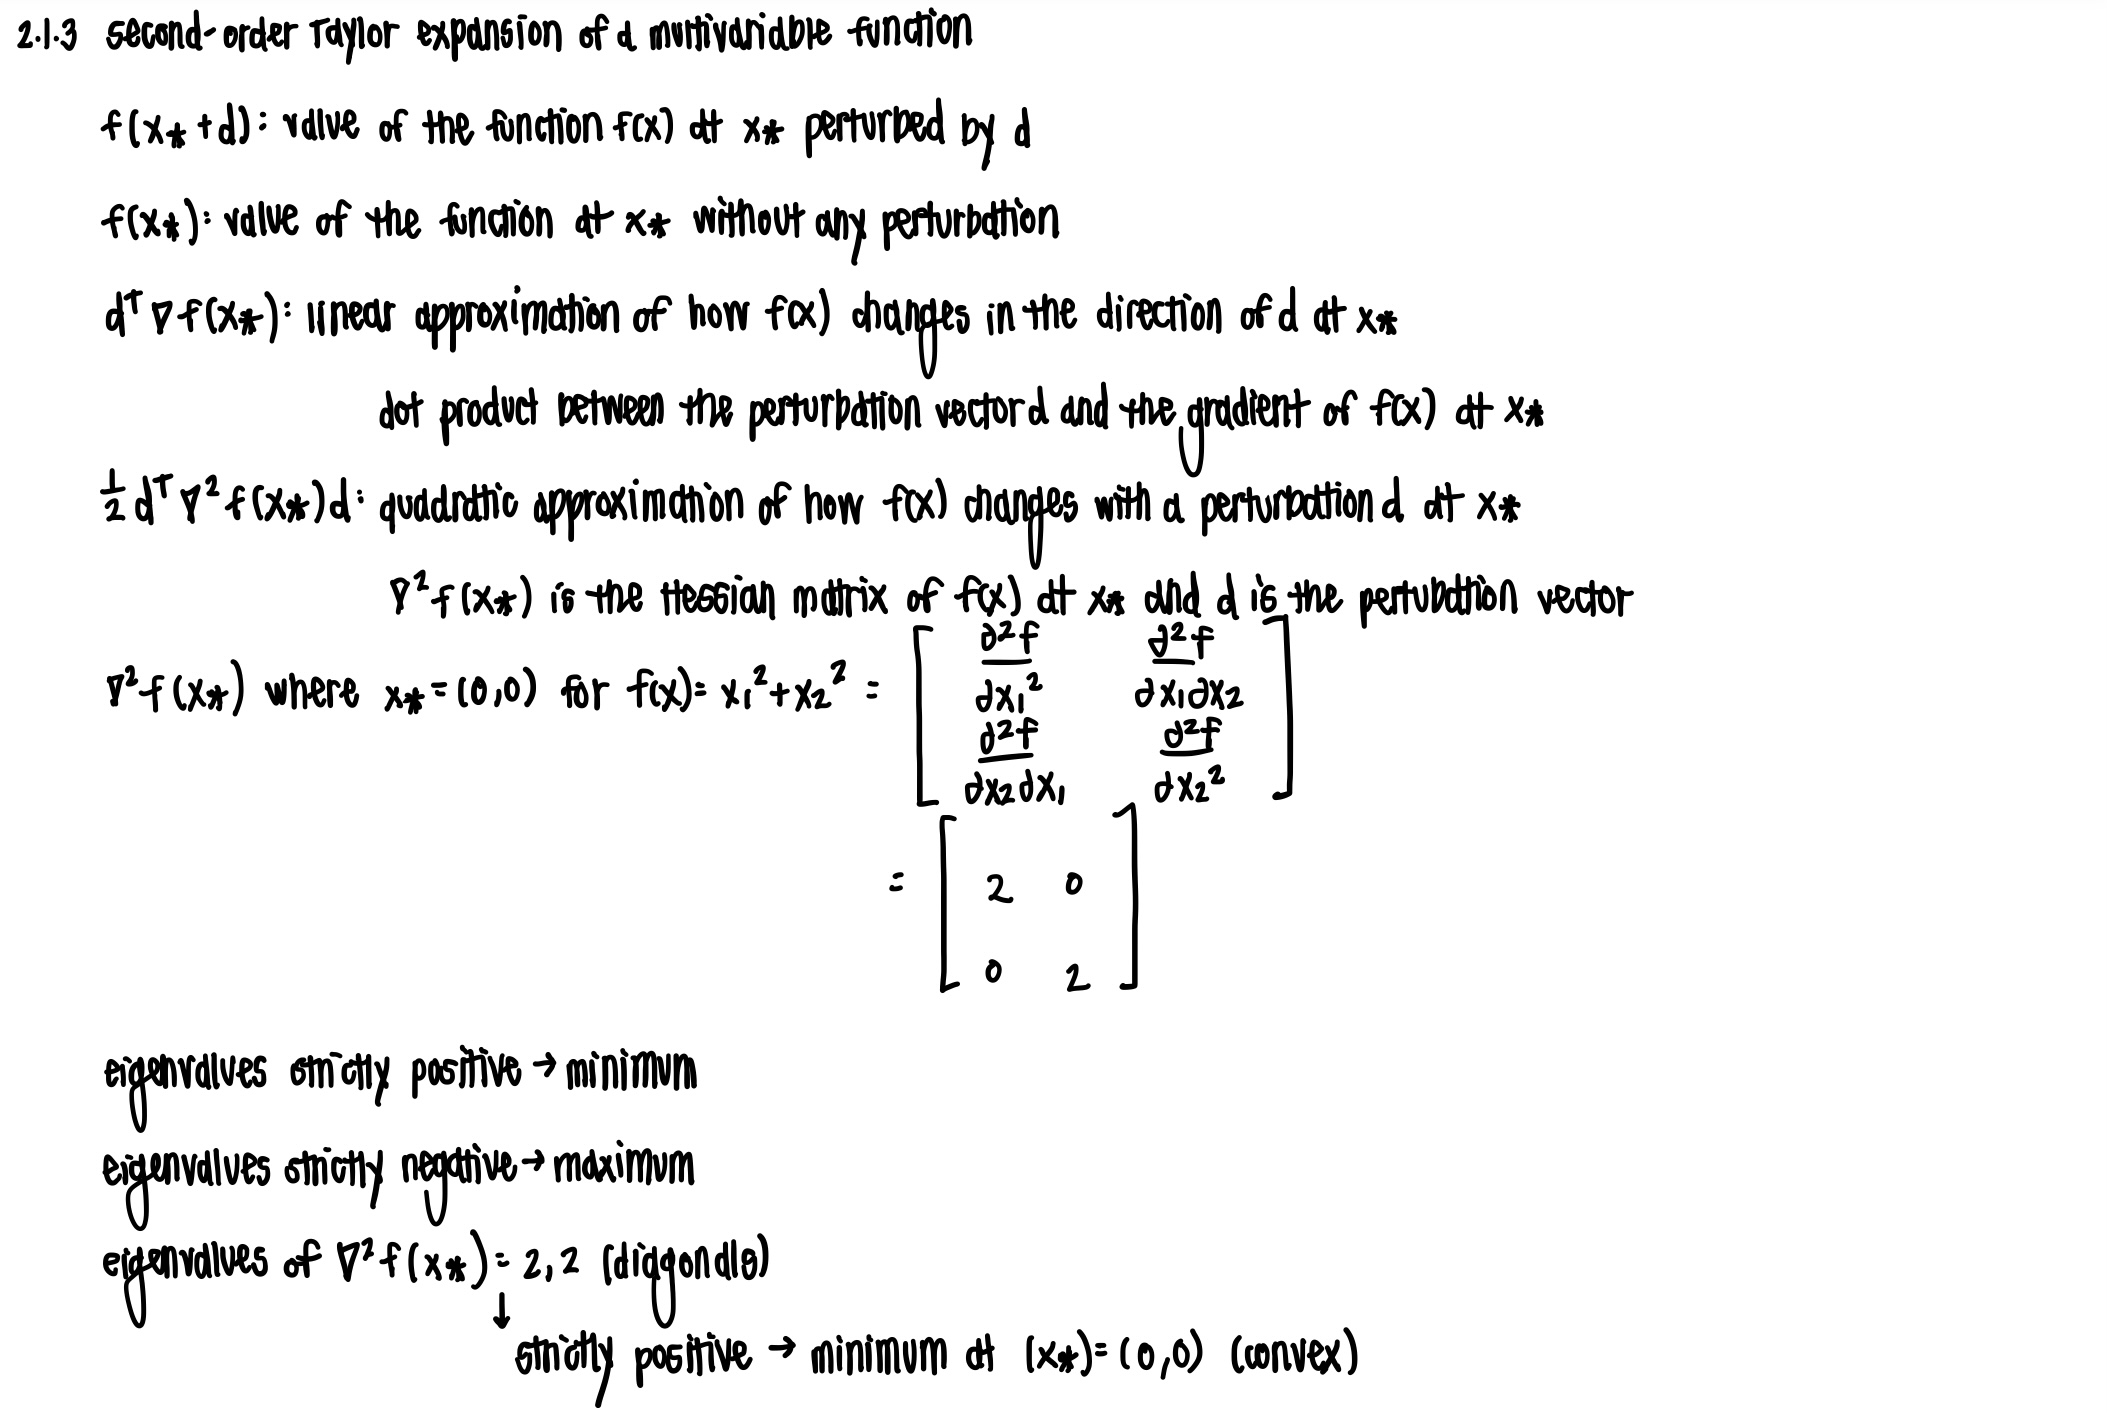 2.1.3 second-order Taylor expansion of a multivariable function
f(x* + d): value of the function f(x) at x* perturbed by d
f(x*): value of the function at x* without any perturbation
dᵀ ∇f(x*): linear approximation of how f(x) changes in the direction of d at x*
dot product between the perturbation vector d and the gradient of f(x) at x*
½ dᵀ ∇² f(x*)d: quadratic approximation of how f(x) changes with a perturbation d at x*
∇² f(x*) is the Hessian matrix of f(x) at x* and d is the pertubation vector
∇² f(x*) where x* = (0,0) for f(x) = x₁² + x₂² = [ ∂²f/∂x₁² ∂²f/∂x₁∂x₂
∂²f/∂x₂∂x₁ ∂²f/∂x₂² ]
= [ 2 0
0 2 ]
eigenvalues strictly positive → minimum
eigenvalues strictly negative → maximum
eigenvalues of ∇² f(x*) = 2,2 (diagonals)
↓
strictly positive → minimum at (x*) = (0,0) (convex)